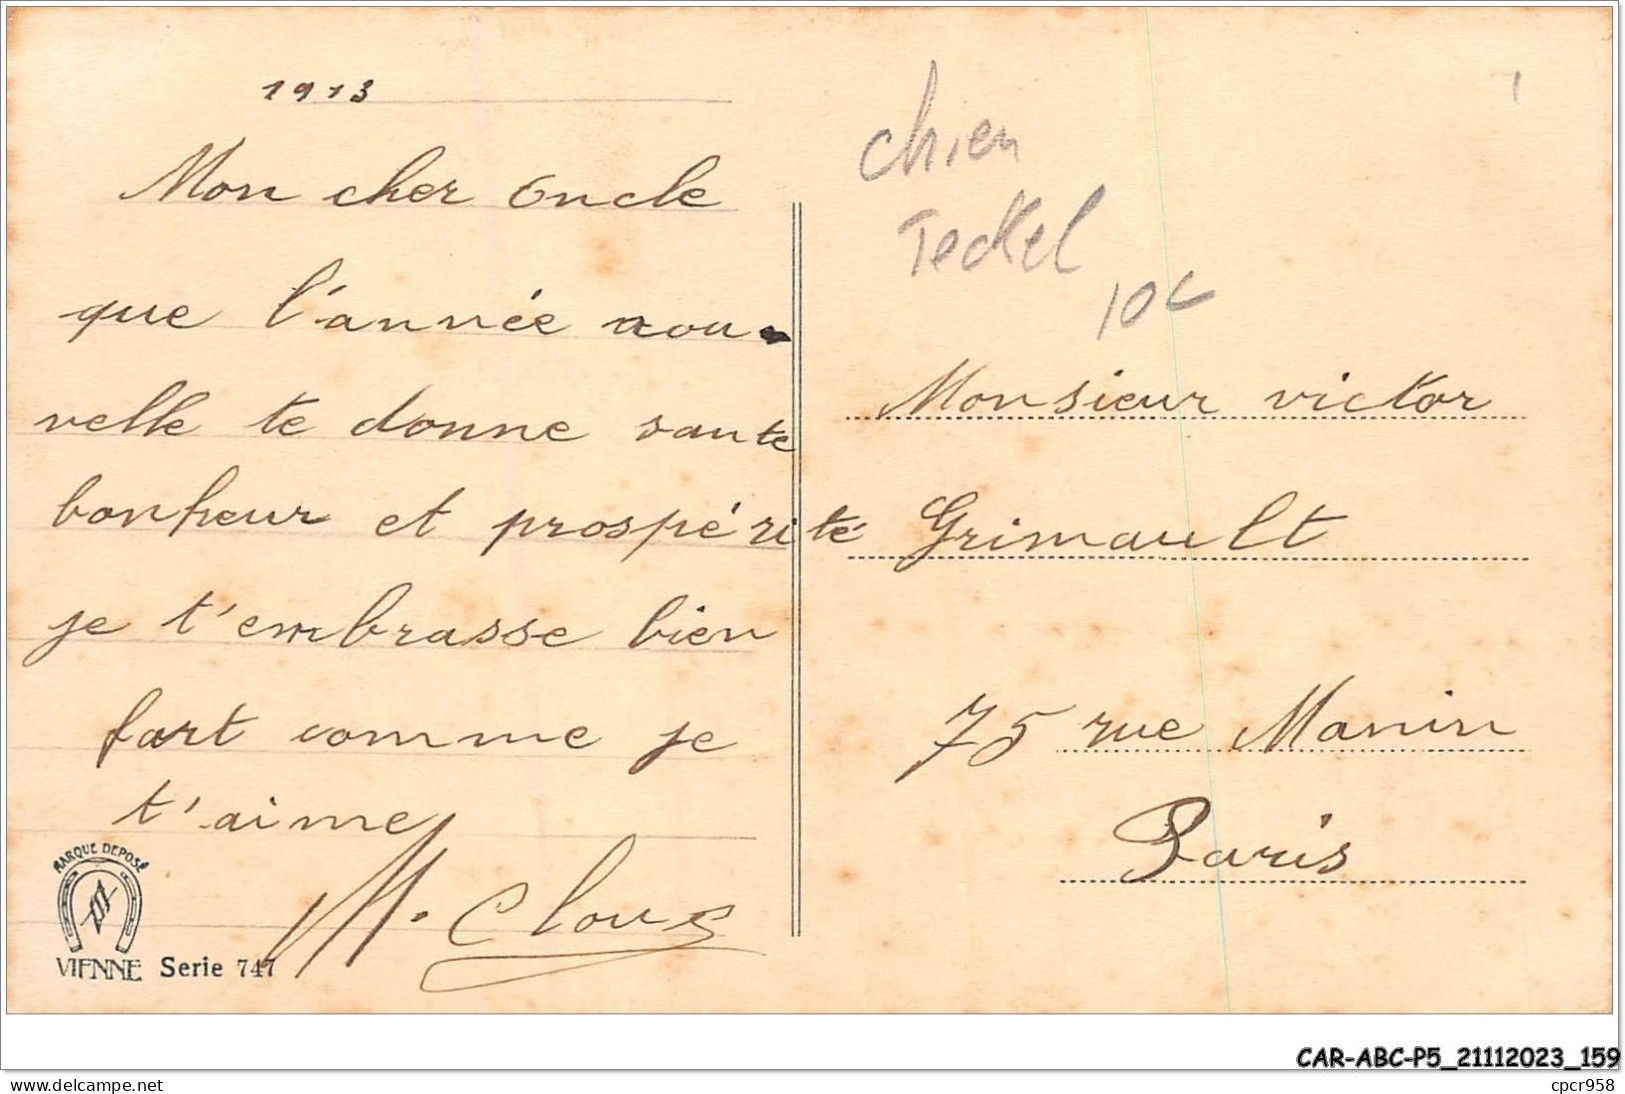 1913
Mon cher Oncle
que l'année nou-
velle te donne sante
bonheur et prospérité
je t'embrasse bien
fort comme je
t'aime
M. Clouz
MARQUE DEPOSÉ
VIENNE Serie 747
chien
Teckel
10c
Monsieur victor
Grimault
75 rue Manin
Paris
CAR-ABC-P5_21112023_159
www.delcampe.net
cpcr958